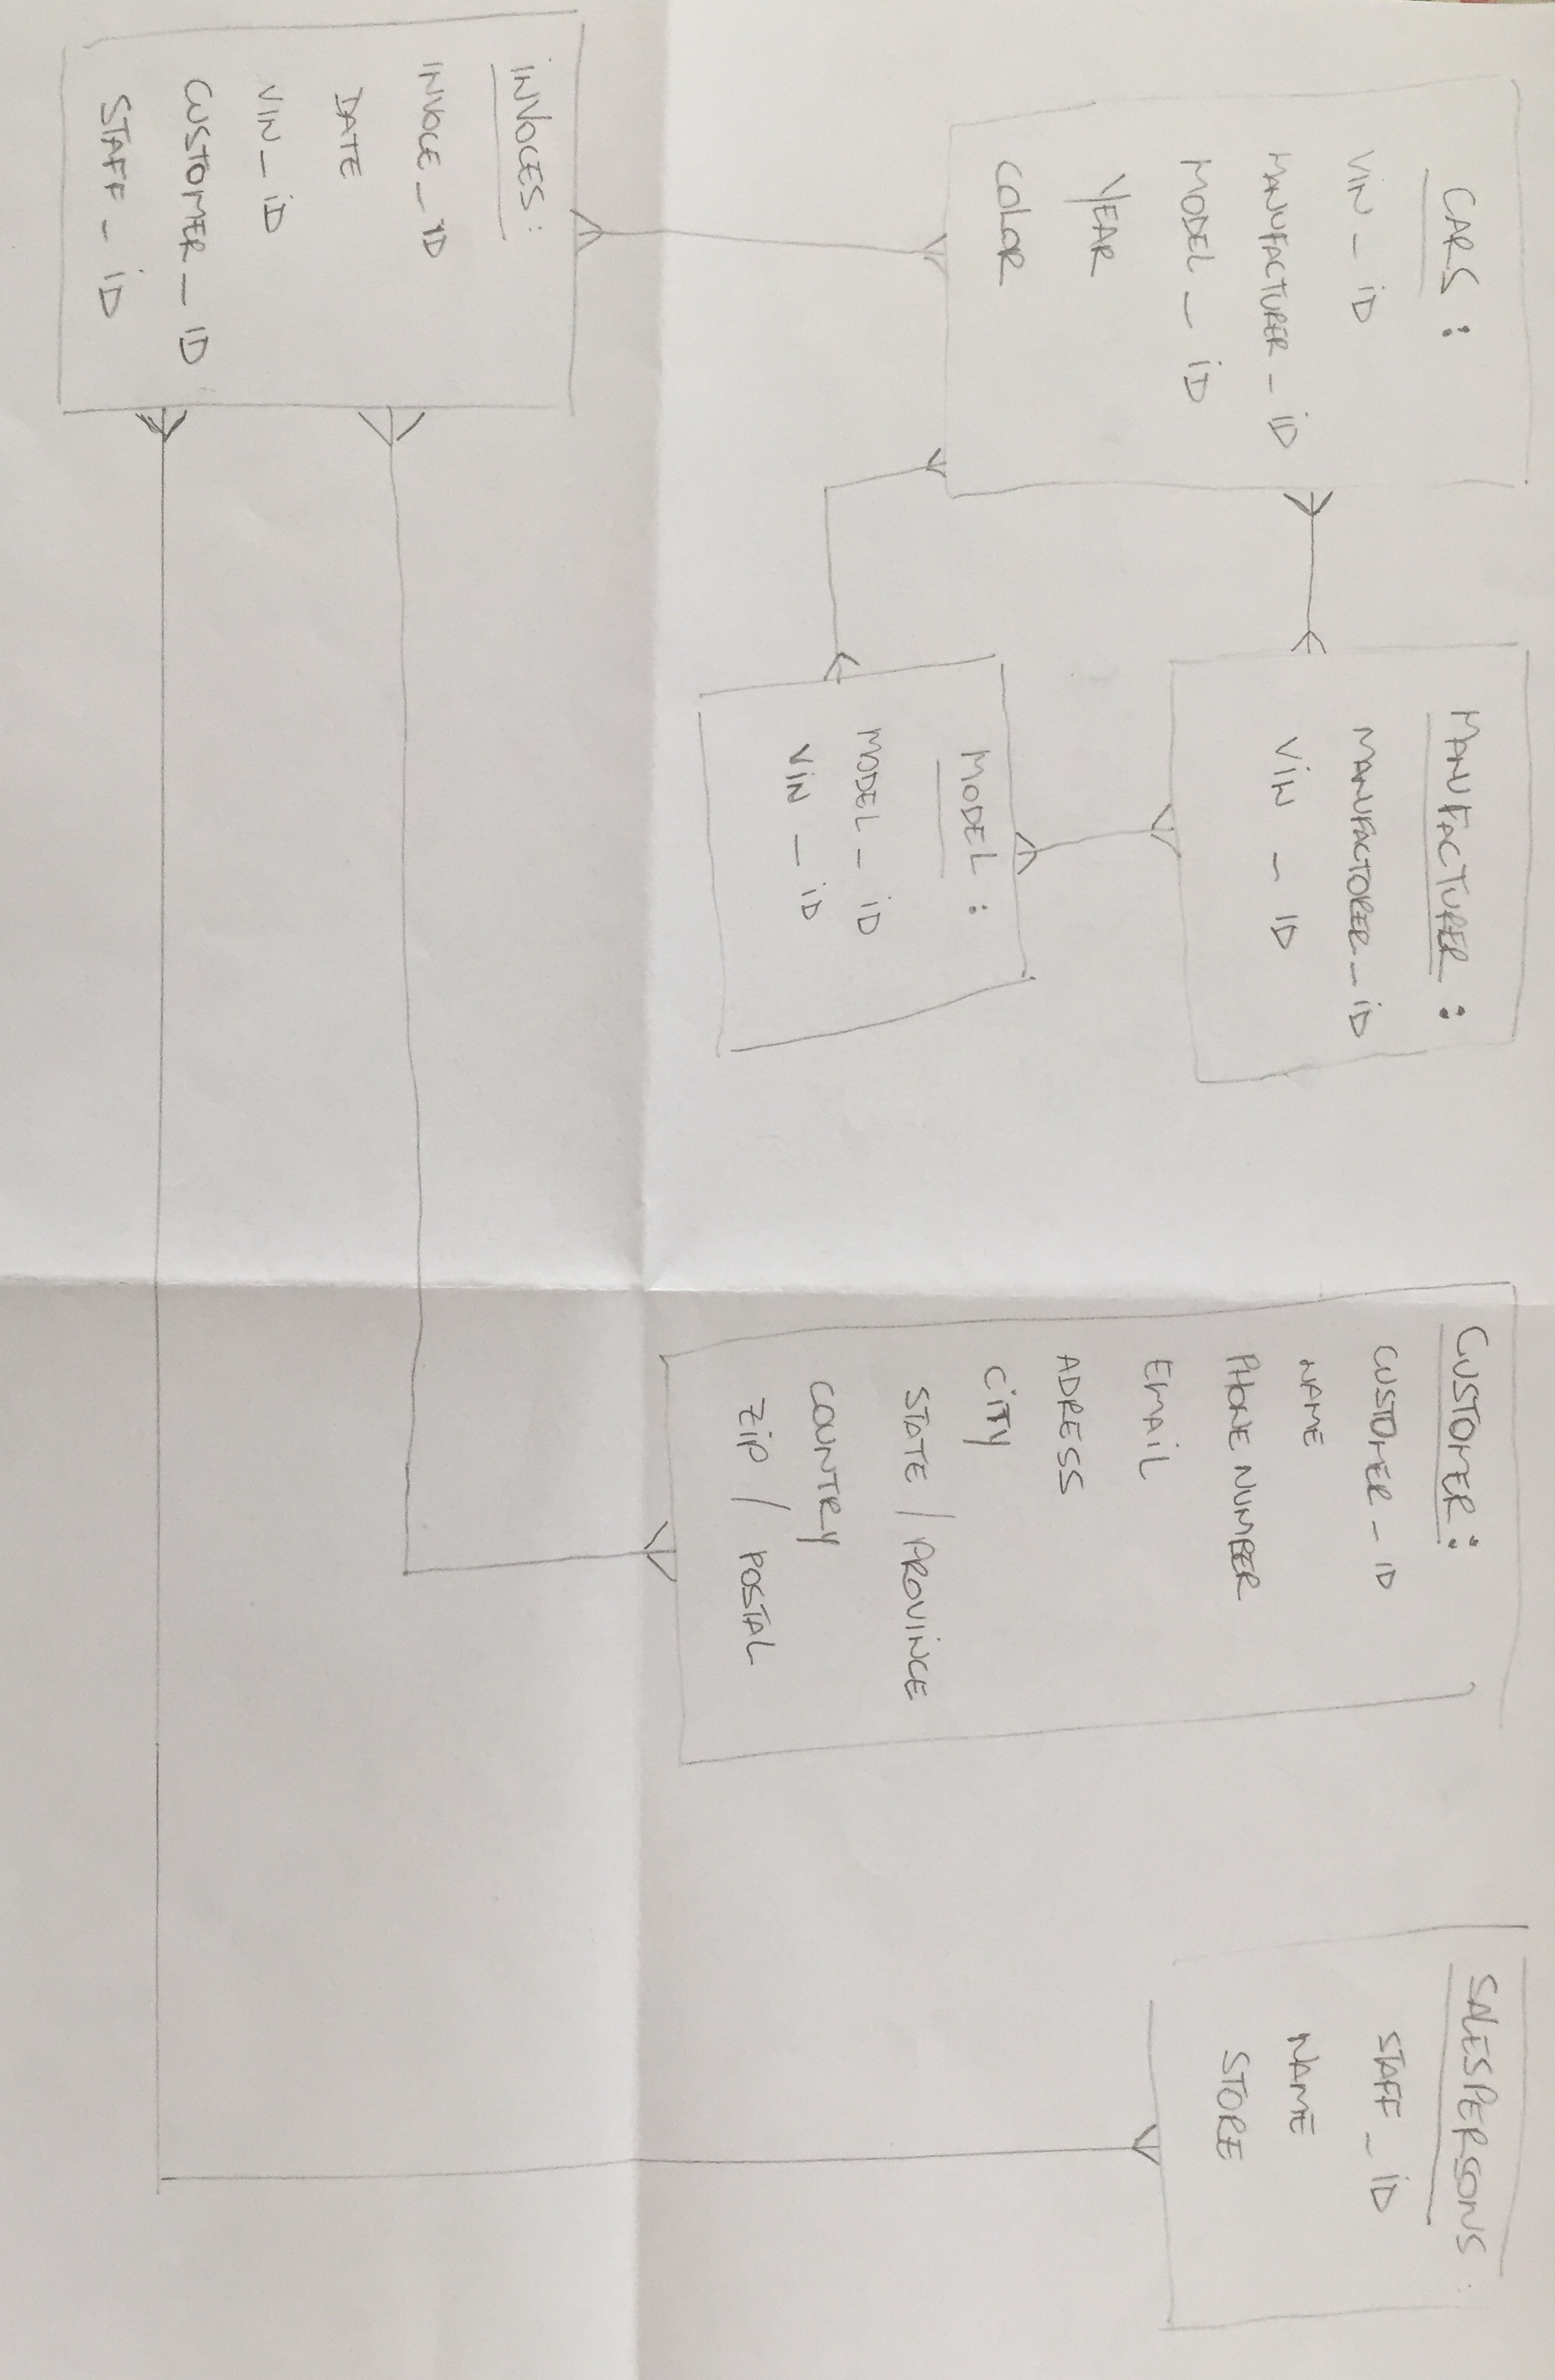 CARS :
VIN _ ID
MANUFACTURER _ ID
MODEL _ ID
YEAR
COLOR
MANUFACTURER :
MANUFACTORER _ ID
VIN _ ID
MODEL :
MODEL _ ID
VIN _ ID
CUSTOMER :
CUSTOMER _ ID
NAME
PHONE NUMBER
EMAIL
ADRESS
CITY
STATE / PROVINCE
COUNTRY
ZIP / POSTAL
SALESPERSONS :
STAFF _ ID
NAME
STORE
INVOCES :
INVOCE _ ID
DATE
VIN _ ID
CUSTOMER _ ID
STAFF _ ID